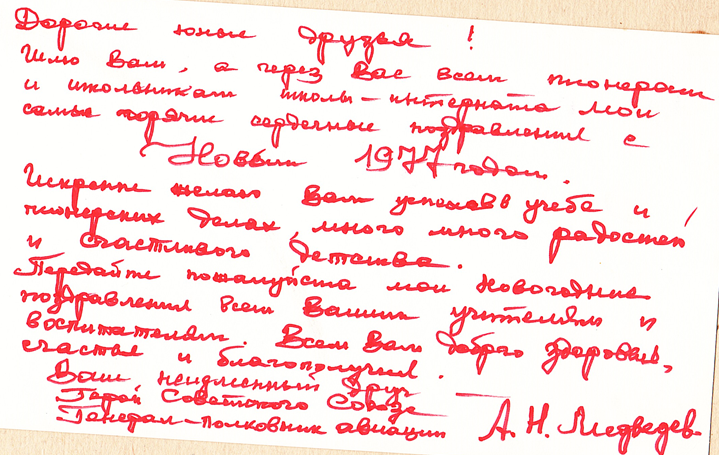 Дорогие юные друзья!
Шлю Вам, а через Вас всем пионерам
и школьникам школы-интерната мои
самые горячие сердечные поздравления с
Новым 1977 годом.
Искренне желаю Вам успехов в учебе и
пионерских делах, много много радостей
и счастливого детства.
Передайте пожалуйста мои Новогодние
поздравления всем Вашим учителям и
воспитателям. Всем Вам доброго здоровья,
счастья и благополучия.
Ваш неизменный друг
Герой Советского Союза
Генерал-полковник авиации А.Н. Медведев